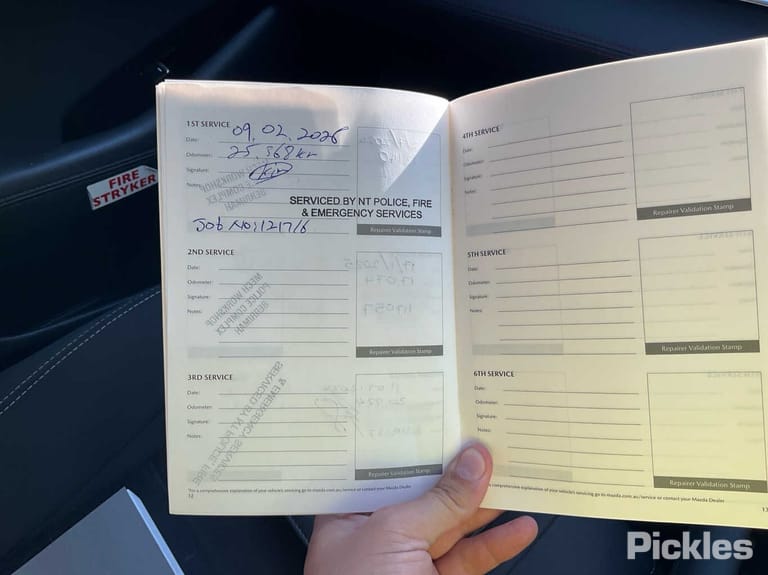 FIRE
STRYKER
1ST SERVICE
Date: 09.02.2026
Odometer: 25,368 km
Signature:
Notes:
SERVICED BY NT POLICE, FIRE
& EMERGENCY SERVICES
Job No: 121716
Repairer Validation Stamp
2ND SERVICE
Date:
Odometer:
Signature:
Notes:
Repairer Validation Stamp
3RD SERVICE
Date:
Odometer:
Signature:
Notes:
Repairer Validation Stamp
*For a comprehensive explanation of your vehicle's servicing go to mazda.com.au/service or contact your Mazda Dealer
12
4TH SERVICE
Date:
Odometer:
Signature:
Notes:
Repairer Validation Stamp
5TH SERVICE
Date:
Odometer:
Signature:
Notes:
Repairer Validation Stamp
6TH SERVICE
Date:
Odometer:
Signature:
Notes:
Repairer Validation Stamp
comprehensive explanation of your vehicle's servicing go to mazda.com.au/service or contact your Mazda Dealer
13
Pickles